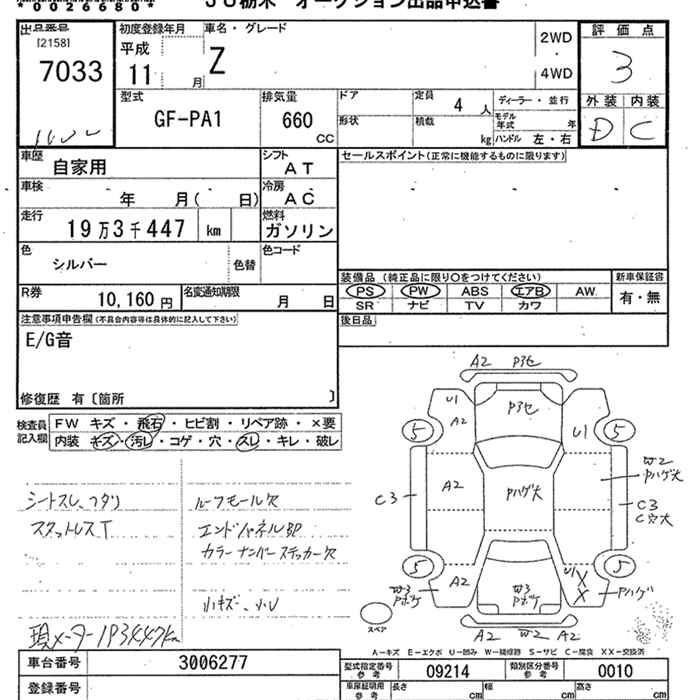 *0026680*
JU栃木 オークション出品申込書
出品番号
[2158]
7033
初度登録年月
平成
11 月
車名・グレード
Z
2WD
4WD
評価点
3
外装 内装
D C
型式
GF-PA1
排気量
660
CC
ドア
形状
定員
4 人
積載
kg
ディーラー・並行
モデル年式 年
ハンドル 左・右
車歴
自家用
シフト
AT
セールスポイント(正常に機能するものに限ります)
車検
年 月( 日)
冷房
AC
走行
19万3千447 km
燃料
ガソリン
色
シルバー
色替
色コード
装備品 (純正品に限り○をつけてください)
新車保証書
PS PW ABS エアB AW
SR ナビ TV カワ
有・無
R券
10,160円
名変通知期限
月 日
後日品
注意事項申告欄(不具合内容等は具体的に記入して下さい)
E/G音
修復歴 有〔箇所 〕
検査員
記入欄
FW キズ・飛石・ヒビ割・リペア跡・×要
内装 キズ・汚レ・コゲ・穴・スレ・キレ・破レ
シートスレ、ヘタリ
スタットレスT
ルーフモール欠
エンドパネルSP
カラーナンバーステッカー欠
小キズ、小U
現メーター193447km
A2 P3セ
U1
A2
P3セ
U1
5
5
C3
A2
Pハゲ大
W2
Pハゲ大
C3
C穴大
5
5
A2
W3
Pボケ
W3
Pボケ
U1
X
X
Pハゲ
A2 W2 A2
スペア
A-キズ E-エクボ U-凹み W-補修跡 S-サビ C-腐食 XX-交換済
車台番号
3006277
登録番号
型式指定番号
参考
09214
類別区分番号
参考
0010
車庫証明用
参考
長さ cm
幅 cm
高さ cm